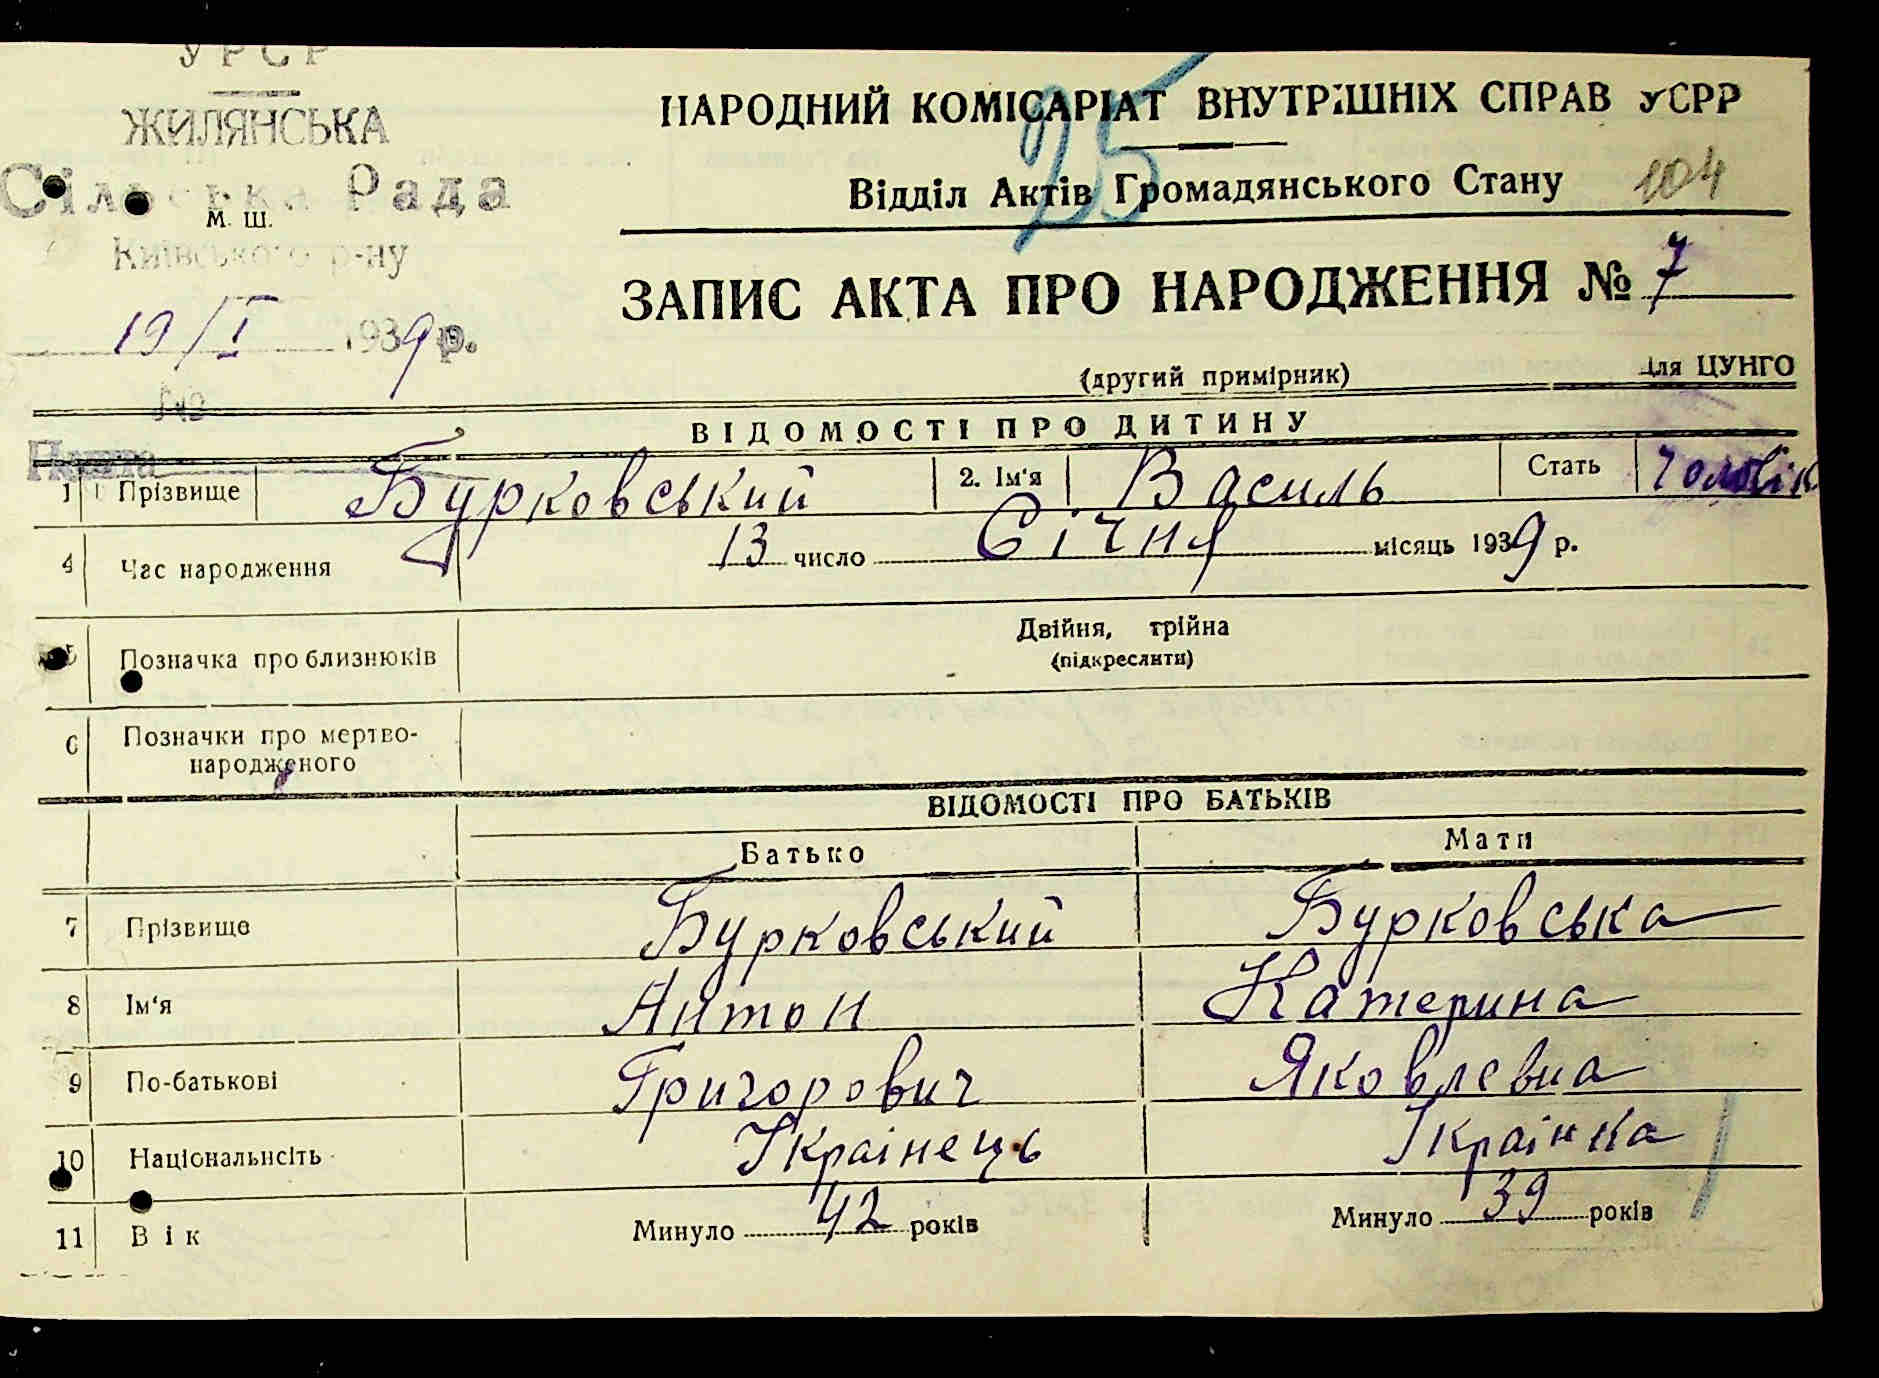 УРСР
ЖИЛЯНСЬКА
Сільська Рада
М. Ш.
Київського р-ну
19/I 1939 р.
№
Пошта
25
НАРОДНИЙ КОМІСАРІАТ ВНУТРІШНІХ СПРАВ УСРР
Відділ Актів Громадянського Стану 104
ЗАПИС АКТА ПРО НАРОДЖЕННЯ № 7
(другий примірник) Для ЦУНГО
ВІДОМОСТІ ПРО ДИТИНУ
1 Прізвище Бурковський 2. Ім'я Василь Стать чоловік
4 Час народження 13 число Січня місяць 1939 р.
5 Позначка про близнюків Двійня, трійна
(підкреслити)
6 Позначки про мертво-
народженого
ВІДОМОСТІ ПРО БАТЬКІВ
Батько Мати
7 Прізвище Бурковський Бурковська
8 Ім'я Антон Катерина
9 По-батькові Григорович Яковлевна
10 Національнсіть Українець Українка
11 Вік Минуло 42 років Минуло 39 років